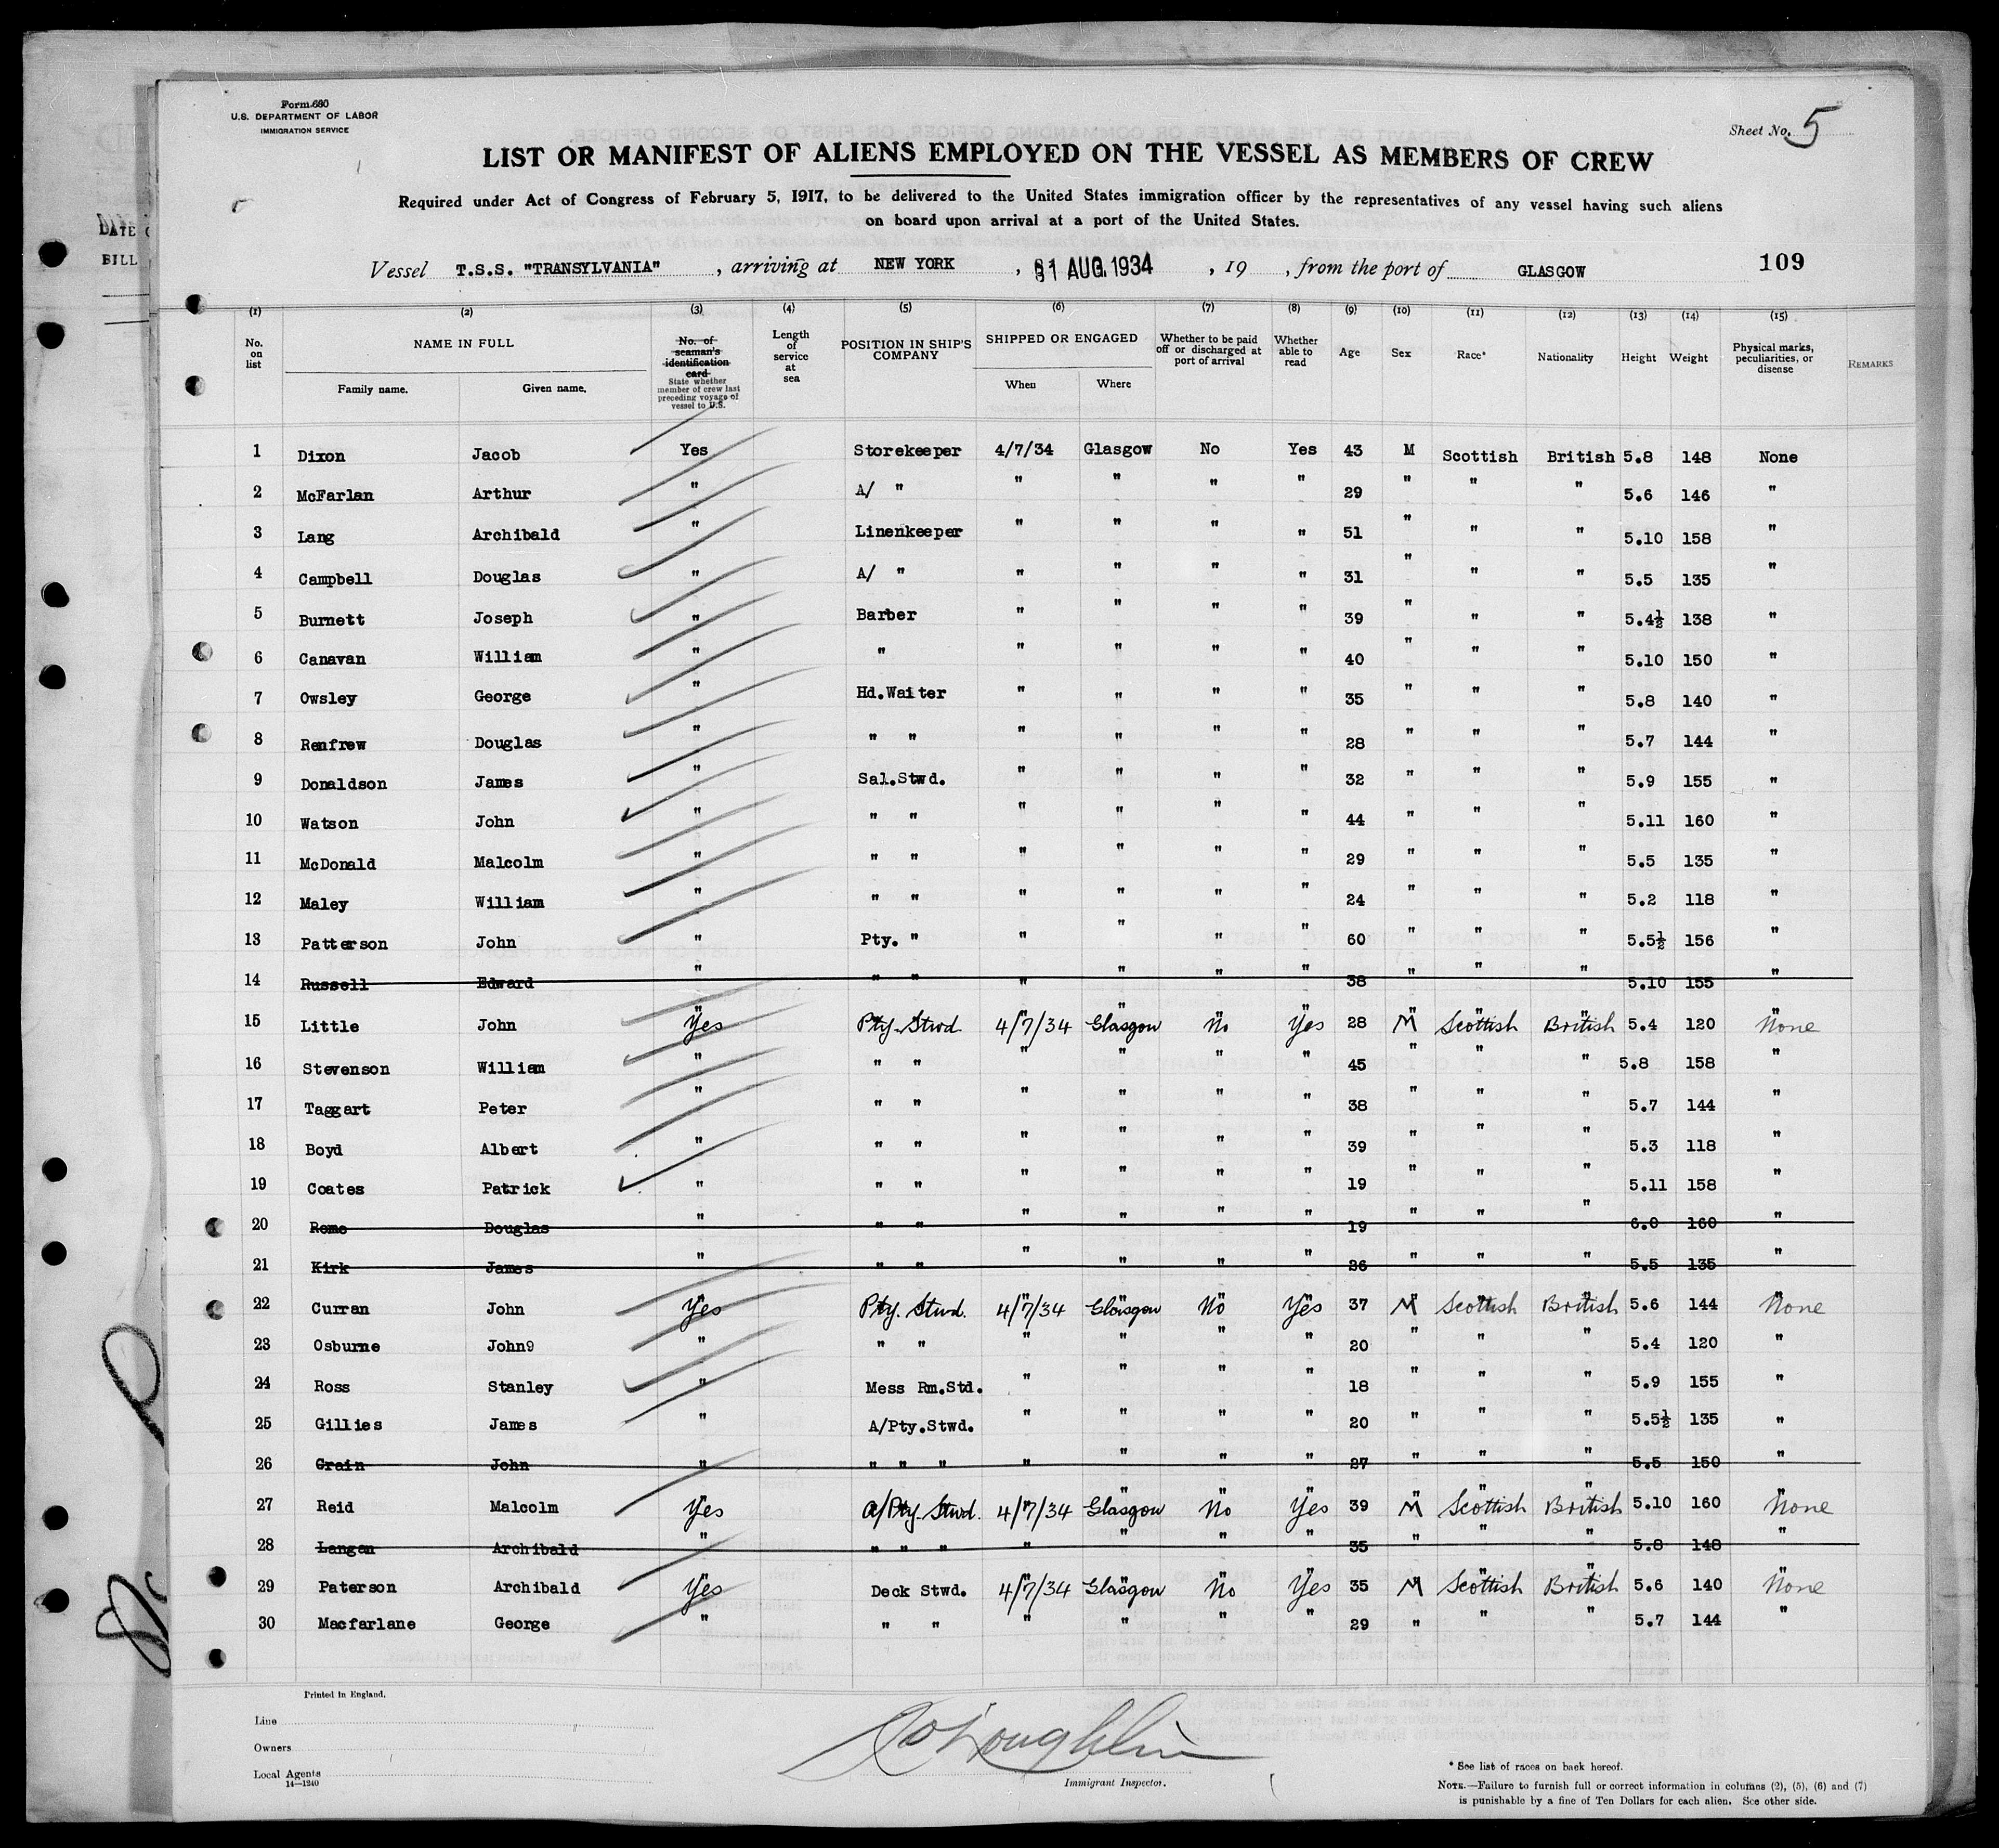 Form 680
U.S. DEPARTMENT OF LABOR
IMMIGRATION SERVICE
Sheet No. 5
LIST OR MANIFEST OF ALIENS EMPLOYED ON THE VESSEL AS MEMBERS OF CREW
Required under Act of Congress of February 5, 1917, to be delivered to the United States immigration officer by the representatives of any vessel having such aliens
on board upon arrival at a port of the United States.
Vessel T.S.S. "TRANSYLVANIA", arriving at NEW YORK, 31 AUG. 1934, 19 , from the port of GLASGOW 109
(1) (2) (3) (4) (5) (6) (7) (8) (9) (10) (11) (12) (13) (14) (15)
No. on list NAME IN FULL Family name. Given name. No. of seaman's identification card State whether member of crew last preceding voyage of vessel to U.S. Length of service at sea POSITION IN SHIP'S COMPANY SHIPPED OR ENGAGED When Where Whether to be paid off or discharged at port of arrival Whether able to read Age Sex Race* Nationality Height Weight Physical marks, peculiarities, or disease REMARKS
1 Dixon Jacob Yes Storekeeper 4/7/34 Glasgow No Yes 43 M Scottish British 5.8 148 None
2 McFarlan Arthur " A/ " " " " " 29 " " " 5.6 146 "
3 Lang Archibald " Linenkeeper " " " " 51 " " " 5.10 158 "
4 Campbell Douglas " A/ " " " " " 31 " " " 5.5 135 "
5 Burnett Joseph " Barber " " " " 39 " " " 5.4½ 138 "
6 Canavan William " " " " " " 40 " " " 5.10 150 "
7 Owsley George " Hd.Waiter " " " " 35 " " " 5.8 140 "
8 Renfrew Douglas " " " " " " " 28 " " " 5.7 144 "
9 Donaldson James " Sal.Stwd. " " " " 32 " " " 5.9 155 "
10 Watson John " " " " " " " 44 " " " 5.11 160 "
11 McDonald Malcolm " " " " " " " 29 " " " 5.5 135 "
12 Maley William " " " " " " " 24 " " " 5.2 118 "
13 Patterson John " Pty. " " " " " 60 " " " 5.5½ 156 "
14 Russell Edward " " " " " " " 38 " " " 5.10 155 "
15 Little John Yes Pty. Stwd 4/7/34 Glasgow No Yes 28 M Scottish British 5.4 120 None
16 Stevenson William " " " " " " " 45 " " " 5.8 158 "
17 Taggart Peter " " " " " " " 38 " " " 5.7 144 "
18 Boyd Albert " " " " " " " 39 " " " 5.3 118 "
19 Coates Patrick " " " " " " " 19 " " " 5.11 158 "
20 Rome Douglas " " " " " " " 19 " " " 6.0 160 "
21 Kirk James " " " " " " " 26 " " " 5.5 135 "
22 Curran John Yes Pty. Stwd. 4/7/34 Glasgow No Yes 37 M Scottish British 5.6 144 None
23 Osburne John9 " " " " " " " 20 " " " 5.4 120 "
24 Ross Stanley " Mess Rm.Std. " " " " 18 " " " 5.9 155 "
25 Gillies James " A/Pty.Stwd. " " " " 20 " " " 5.5½ 135 "
26 Grain John " " " " " " " " 27 " " " 5.5 150 "
27 Reid Malcolm Yes A/Pty. Stwd. 4/7/34 Glasgow No Yes 39 M Scottish British 5.10 160 None
28 Langan Archibald " " " " " " " " 35 " " " 5.8 148 "
29 Paterson Archibald Yes Deck Stwd. 4/7/34 Glasgow No Yes 35 M Scottish British 5.6 140 None
30 Macfarlane George " " " " " " " 29 " " " 5.7 144 "
Printed in England.
Line
Owners
Local Agents
14—1240
Immigrant Inspector.
* See list of races on back hereof.
NOTE.—Failure to furnish full or correct information in columns (2), (5), (6) and (7)
is punishable by a fine of Ten Dollars for each alien. See other side.